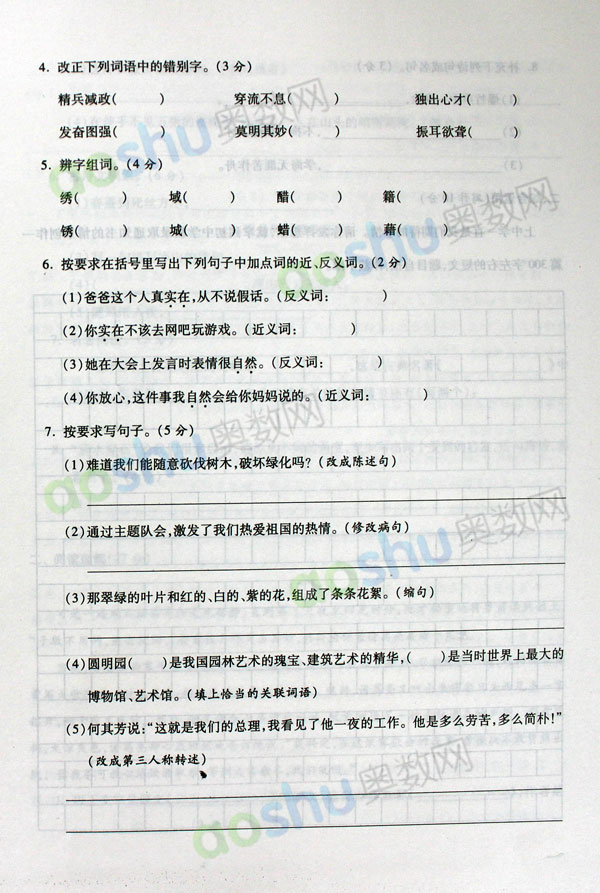 4. 改正下列词语中的错别字。(3 分)
精兵减政(　　) 穿流不息(　　) 独出心才(　　)
发奋图强(　　) 莫明其妙(　　) 振耳欲聋(　　)
5. 辨字组词。(4 分)
绣(　　) 域(　　) 醋(　　) 籍(　　)
锈(　　) 城(　　) 蜡(　　) 藉(　　)
6. 按要求在括号里写出下列句子中加点词的近、反义词。(2 分)
(1)爸爸这个人真实在,从不说假话。(反义词:　　)
(2)你实在不该去网吧玩游戏。(近义词:　　)
(3)她在大会上发言时表情很自然。(反义词:　　)
(4)你放心,这件事我自然会给你妈妈说的。(近义词:　　)
7. 按要求写句子。(5 分)
(1)难道我们能随意砍伐树木,破坏绿化吗?(改成陈述句)
(2)通过主题队会,激发了我们热爱祖国的热情。(修改病句)
(3)那翠绿的叶片和红的、白的、紫的花,组成了条条花絮。(缩句)
(4)圆明园(　　)是我国园林艺术的瑰宝、建筑艺术的精华,(　　)是当时世界上最大的
博物馆、艺术馆。(填上恰当的关联词语)
(5)何其芳说:“这就是我们的总理,我看见了他一夜的工作。他是多么劳苦,多么简朴!”
(改成第三人称转述)
aoshu奥数网
aoshu奥数网
aoshu奥数网
aoshu奥数网
aoshu奥数网